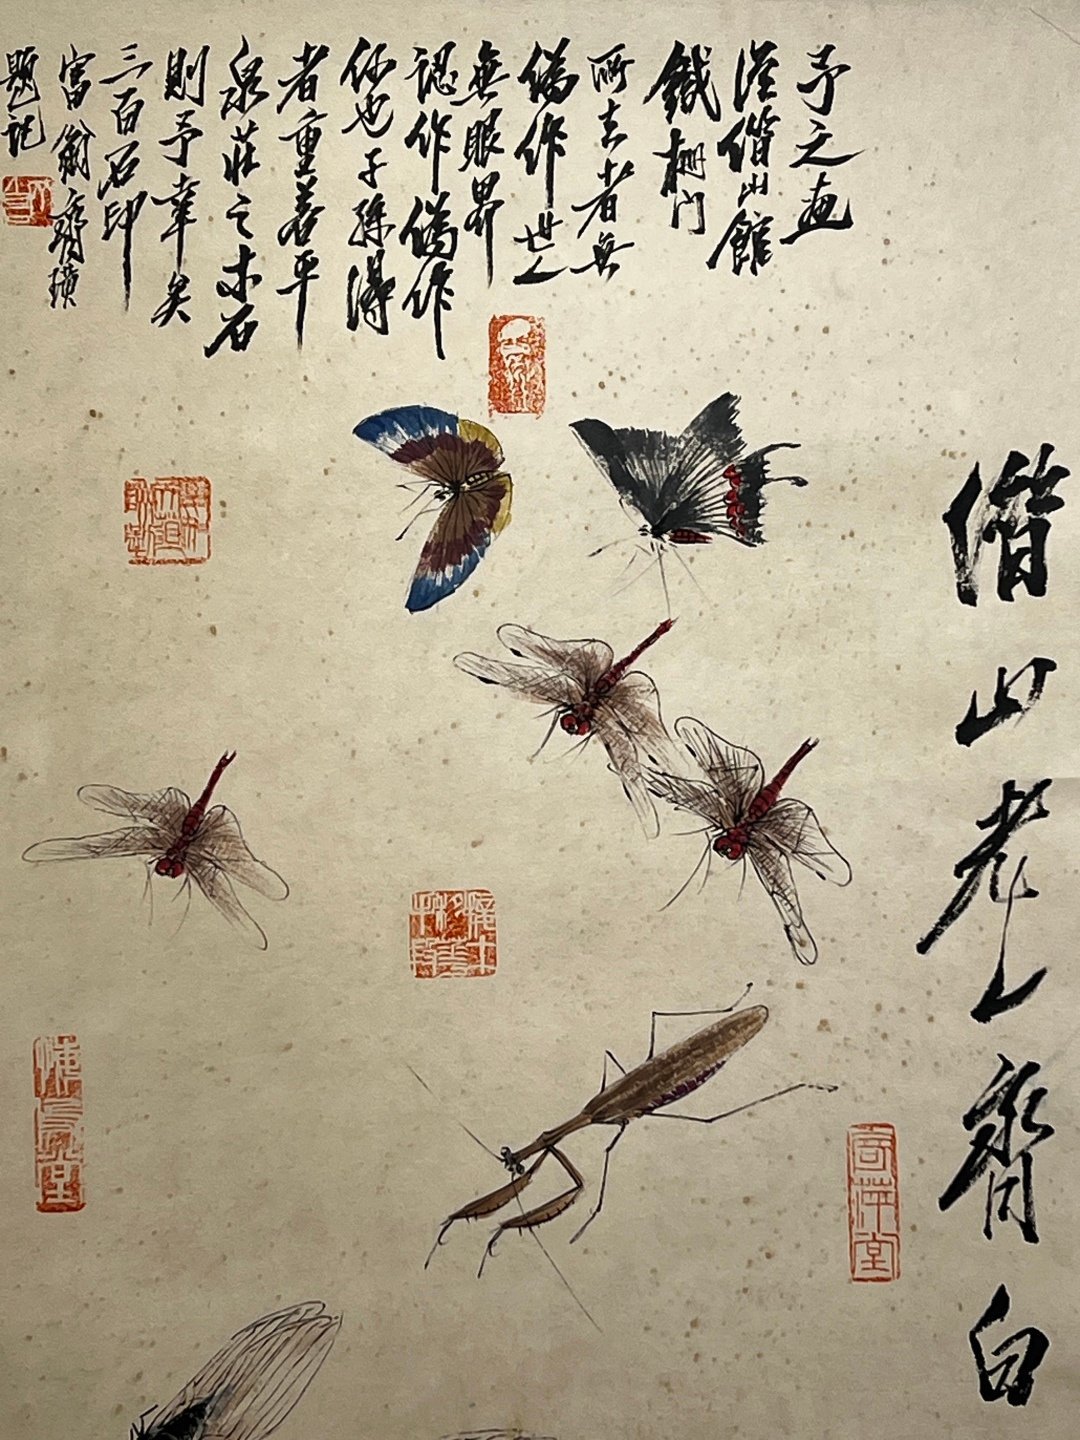 借山老人齊白
予之畫
從借山館
鐵柵門
所去者無
偽作世人
無眼界
認作偽作
任也子孫得
者重若平
泉莊之木石
則予幸矣
三百石印
富翁齊璜
題記
寄萍堂
悔烏堂